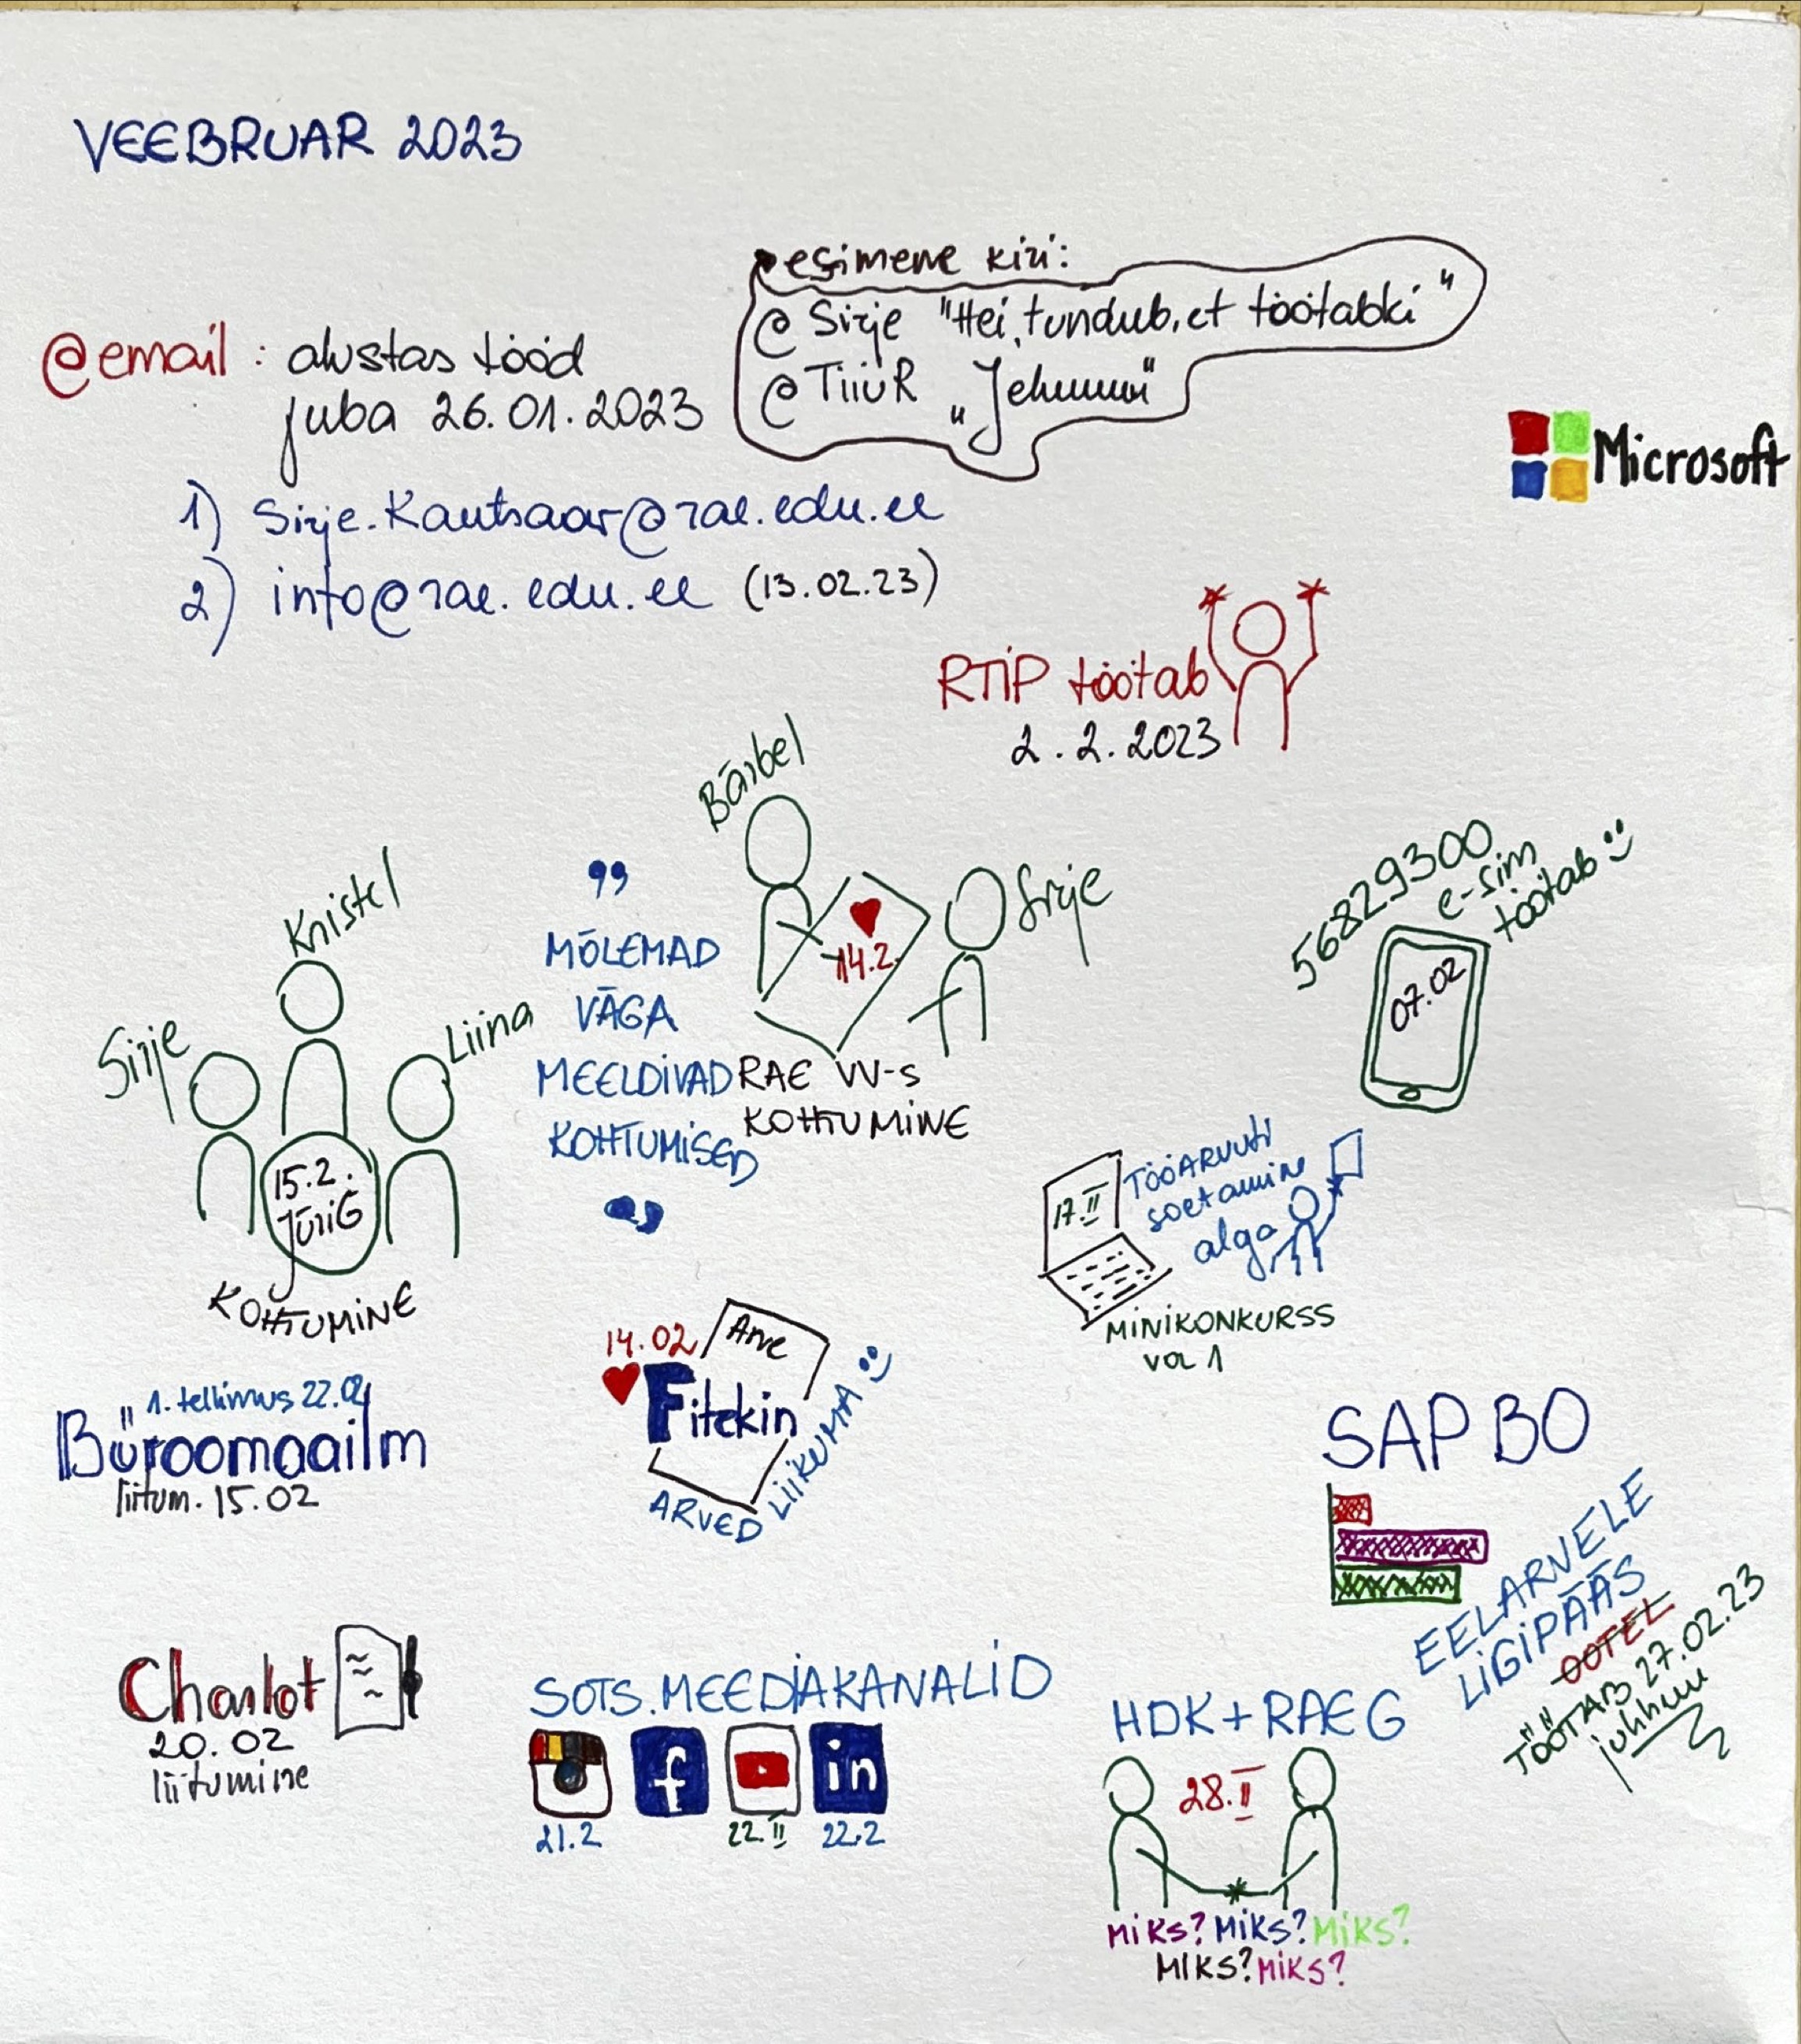 VEEBRUAR 2023
esimene kiri:
@ Sirje "Hei, tundub, et töötabki"
@ TiiuR „Jehuuuu"
@email : alustas tööd
juba 26.01.2023
Microsoft
1) Sirje.Kautsaar@rae.edu.ee
2) info@rae.edu.ee (13.02.23)
RTIP töötab
2.2.2023
Bärbel
Sirje
14.2.
RAE VV-s
KOHTUMINE
56829300
e-sim
töötab
07.02
Kristel
Sirje
Liina
15.2.
JüriG
KOHTUMINE
"
MÕLEMAD
VÄGA
MEELDIVAD
KOHTUMISED
"
17.II
TÖÖARVUTI
soetamine
alga
MINIKONKURSS
VOL 1
1. tellimus 22.02
Büroomaailm
liitum. 15.02
14.02
Arve
Fitekin
ARVED LIIKUMA
SAP BO
EELARVELE
LIGIPÄÄS
OOTEL
TÖÖTAB 27.02.23
juhhuu
Charlot
20.02
liitumine
SOTS.MEEDIAKANALID
f in
21.2 22.II 22.2
HDK+RAEG
28.II
MIKS? MIKS? MIKS?
MIKS? MIKS?